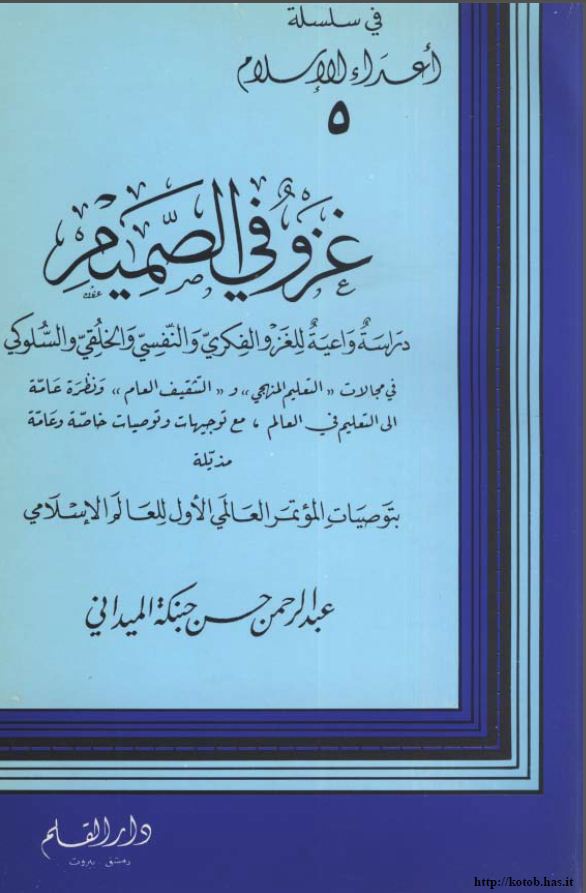 في سلسلة
أعداء الإسلام
٥
غَزْوٌ في الصَّمِيمِ
دراسَةٌ واعيَةٌ للغَزو الفِكريّ والنّفسِيّ والخُلُقيّ والسُّلوكي
في مجالات «التعليم المنهجي» و «التثقيف العام» ونظرة عامّة
الى التعليم في العالم ، مع توجيهات وتوصيات خاصّة وعَامّة
مذيّلة
بتوصيَاتِ المؤتمر العالمي الأول للعالم الإسلامي
عبد الرحمن حسن حبنكة الميداني
دار القلم
دمشق - بيروت
http://kotob.has.it